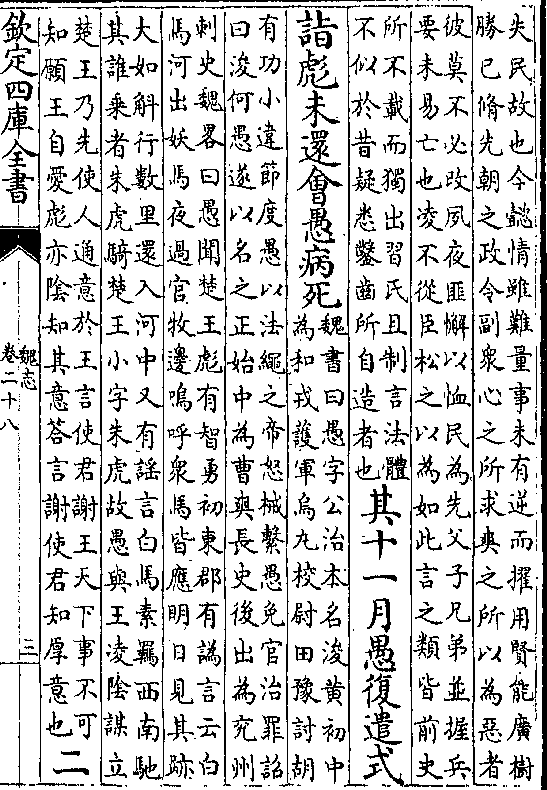 失民故也今懿情雖難量事未有逆而擢用賢能廣樹
勝已脩先朝之政令副衆心之所求爽之所以為惡者
彼莫不必改夙夜匪懈以恤民為先父子兄弟並握兵
要未易亡也凌不從臣松之以為如此言之類皆前史
所不載而獨出習氏且制言法體
不似於昔疑悉鑿齒所自造者也
其十一月愚復遣式
詣彪未還會愚病死
魏書曰愚字公治本名浚黄初中
為和戎護軍烏丸校尉田豫討胡
有功小違節度愚以法繩之帝怒械繫愚免官治罪詔
曰浚何愚遂以名之正始中為曹爽長史後出為兖州
刺史魏畧曰愚聞楚王彪有智勇初東郡有譌言云白
馬河出妖馬夜過官牧邊鳴呼衆馬皆應明日見其跡
大如斛行數里還入河中又有謡言白馬素羈西南馳
其誰乘者朱虎騎楚王小字朱虎故愚與王凌陰謀立
楚王乃先使人通意於王言使君謝王天下事不可
知願王自愛彪亦陰知其意答言謝使君知厚意也
二
欽定四庫全書
魏志
卷二十八
三